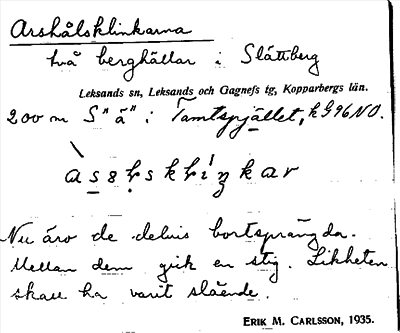 Arshålsklinkarna
två berghällar i Slättberg
Leksands sn, Leksands och Gagnefs tg, Kopparbergs län.
200 m S "ä" i
Nu äro de delvis bortsprängda.
Mellan dem gick en stig. Likheten
skall ha varit slående.
ERIK M. CARLSSON, 1935.